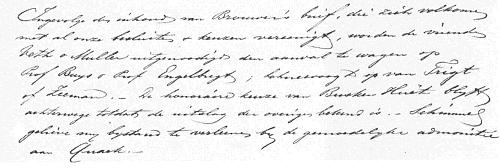 Ingevolge des inhoud van Brouwer's brief, die zich volkomen
met al onze besluiten & keuzen vereenigt, worden de vrienden
Noth & Muller uitgenoodigd den aanval te wagen op
Prof Buys & Prof Engelbregt, op van Trigt
of Zeeman. – De honoraire keuze van Busken Huët blyft
achterwege totdat de uitslag der overige bekend is. – Schimmel
gelieve my bystand te verleenen by de gemoedelyke admonitie
aan Quack. –